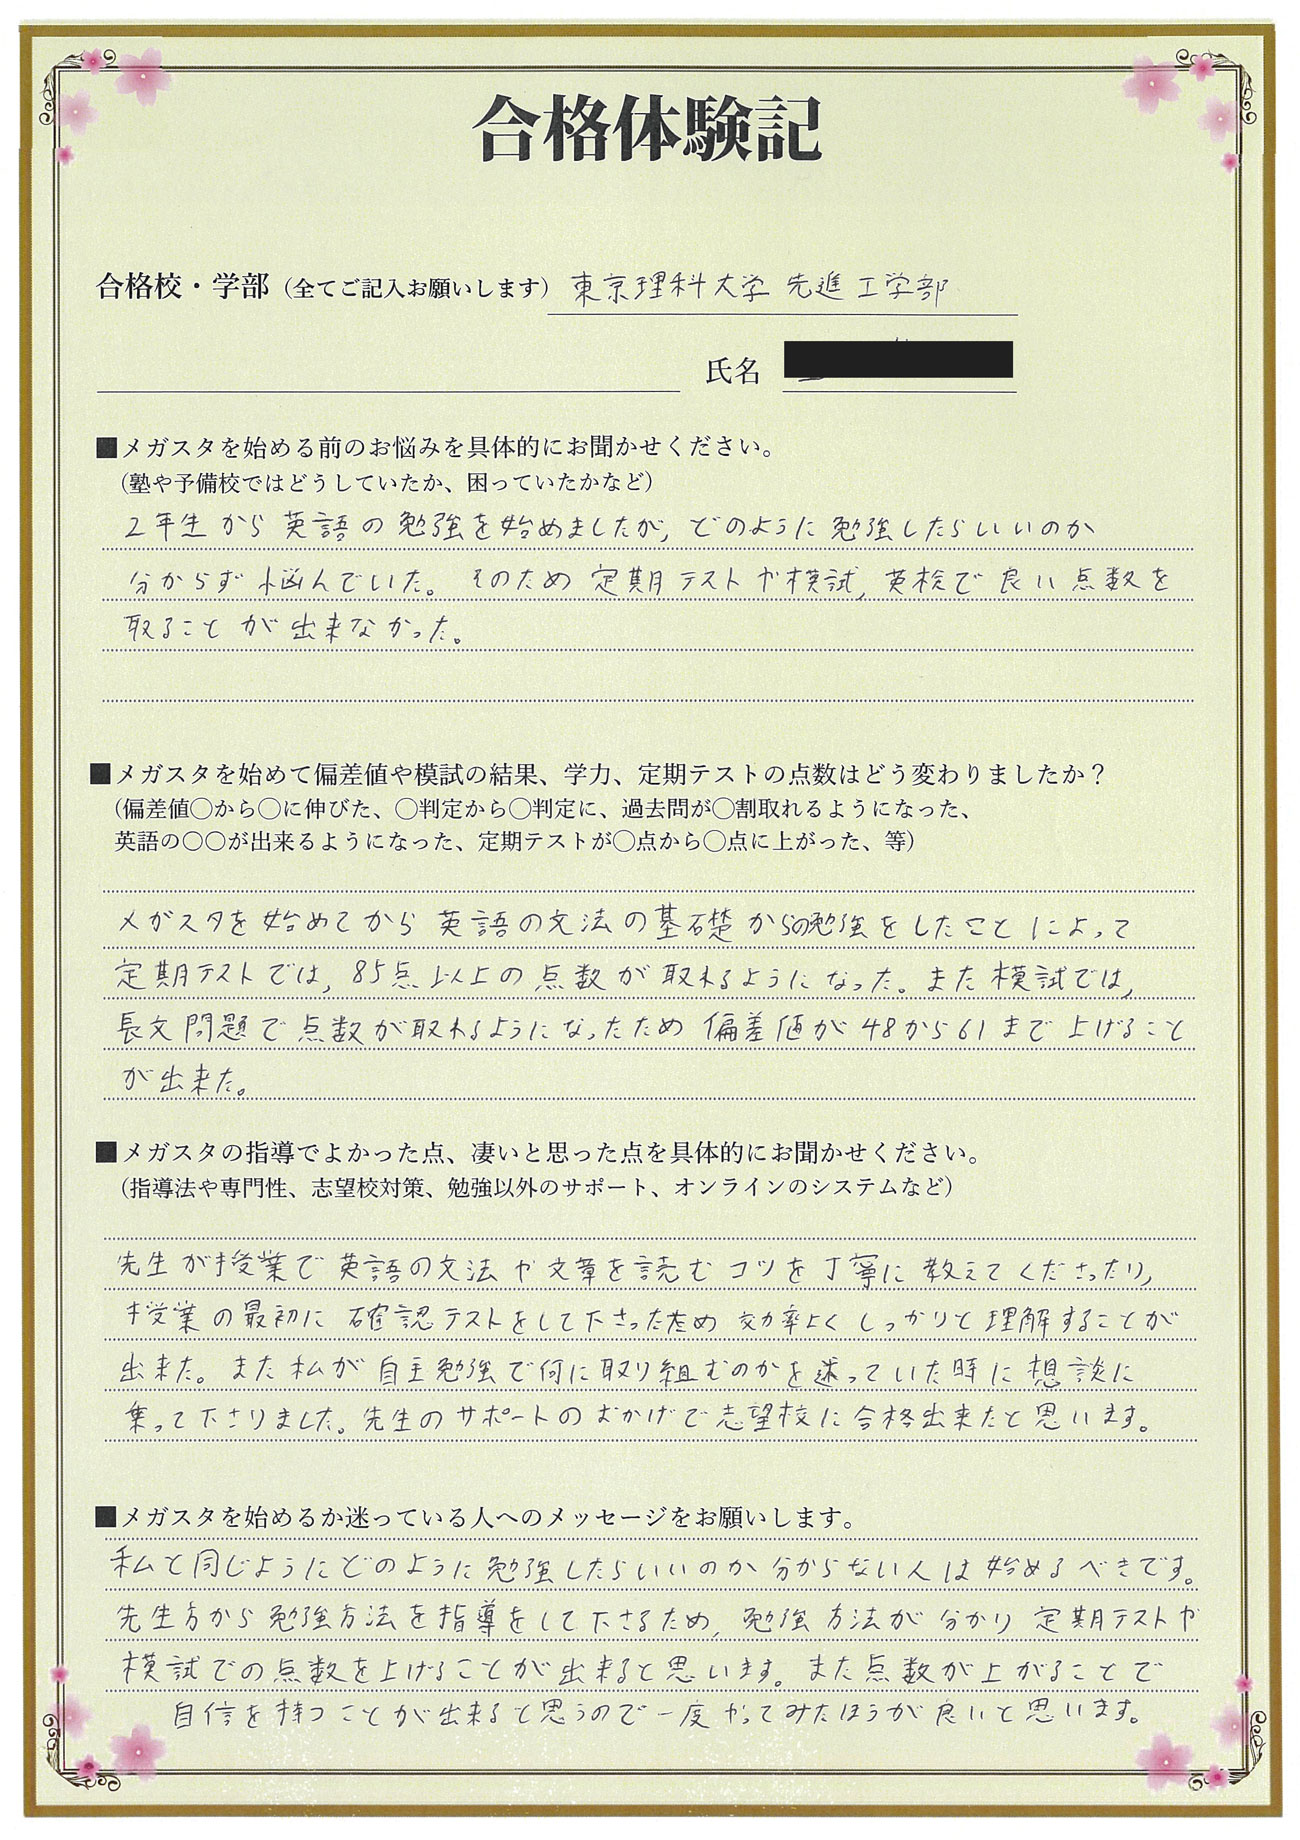 合格体験記
合格校・学部（全てご記入お願いします） 東京理科大学 先進工学部
氏名
■メガスタを始める前のお悩みを具体的にお聞かせください。
（塾や予備校ではどうしていたか、困っていたかなど）
2年生から英語の勉強を始めましたが，どのように勉強したらいいのか
分からず悩んでいた。そのため定期テストや模試，英検で良い点数を
取ることが出来なかった。
■メガスタを始めて偏差値や模試の結果、学力、定期テストの点数はどう変わりましたか？
（偏差値〇から〇に伸びた、〇判定から〇判定に、過去問が〇割取れるようになった、
英語の〇〇が出来るようになった、定期テストが〇点から〇点に上がった、等）
メガスタを始めてから英語の文法の基礎からの勉強をしたことによって
定期テストでは，85点以上の点数が取れるようになった。また模試では，
長文問題で点数が取れるようになったため偏差値が48から61まで上げること
が出来た。
■メガスタの指導でよかった点、凄いと思った点を具体的にお聞かせください。
（指導法や専門性、志望校対策、勉強以外のサポート、オンラインのシステムなど）
先生が授業で英語の文法や文章を読むコツを丁寧に教えてくださったり，
授業の最初に確認テストをして下さったため効率よくしっかりと理解することが
出来た。また私が自主勉強で何に取り組むのかを迷っていた時に想談に
乗って下さりました。先生のサポートのおかげで志望校に合格出来たと思います。
■メガスタを始めるか迷っている人へのメッセージをお願いします。
私と同じようにどのように勉強したらいいのか分からない人は始めるべきです。
先生方から勉強方法を指導をして下さるため，勉強方法が分かり定期テストや
模試での点数を上げることが出来ると思います。また点数が上がることで
自信を持つことが出来ると思うので一度やってみたほうが良いと思います。